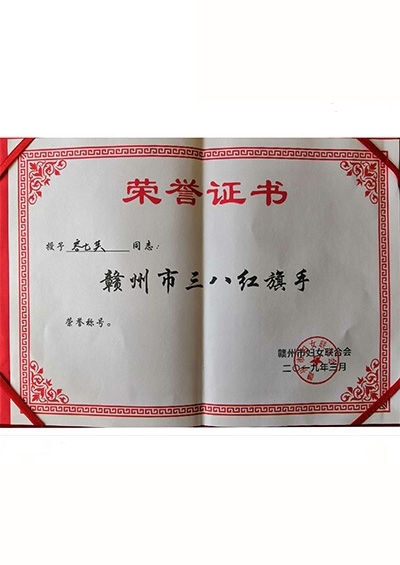 荣誉证书
授予 同志：
赣州市三八红旗手
荣誉称号。
赣州市妇女联合会
二〇一九年三月